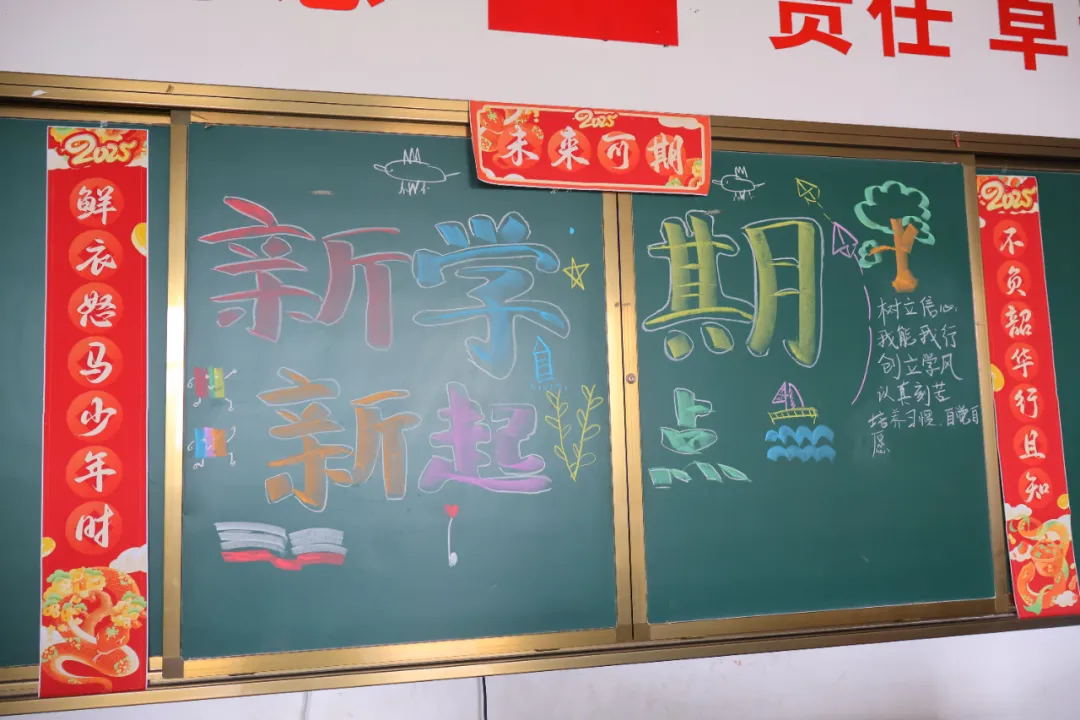 责任
2025
未来可期
2025
鲜衣怒马少年时
新学期
新起点
树立信心.
我能我行
创立学风
认真刻苦
培养习惯.自觉自
愿
2025
不负韶华行且知